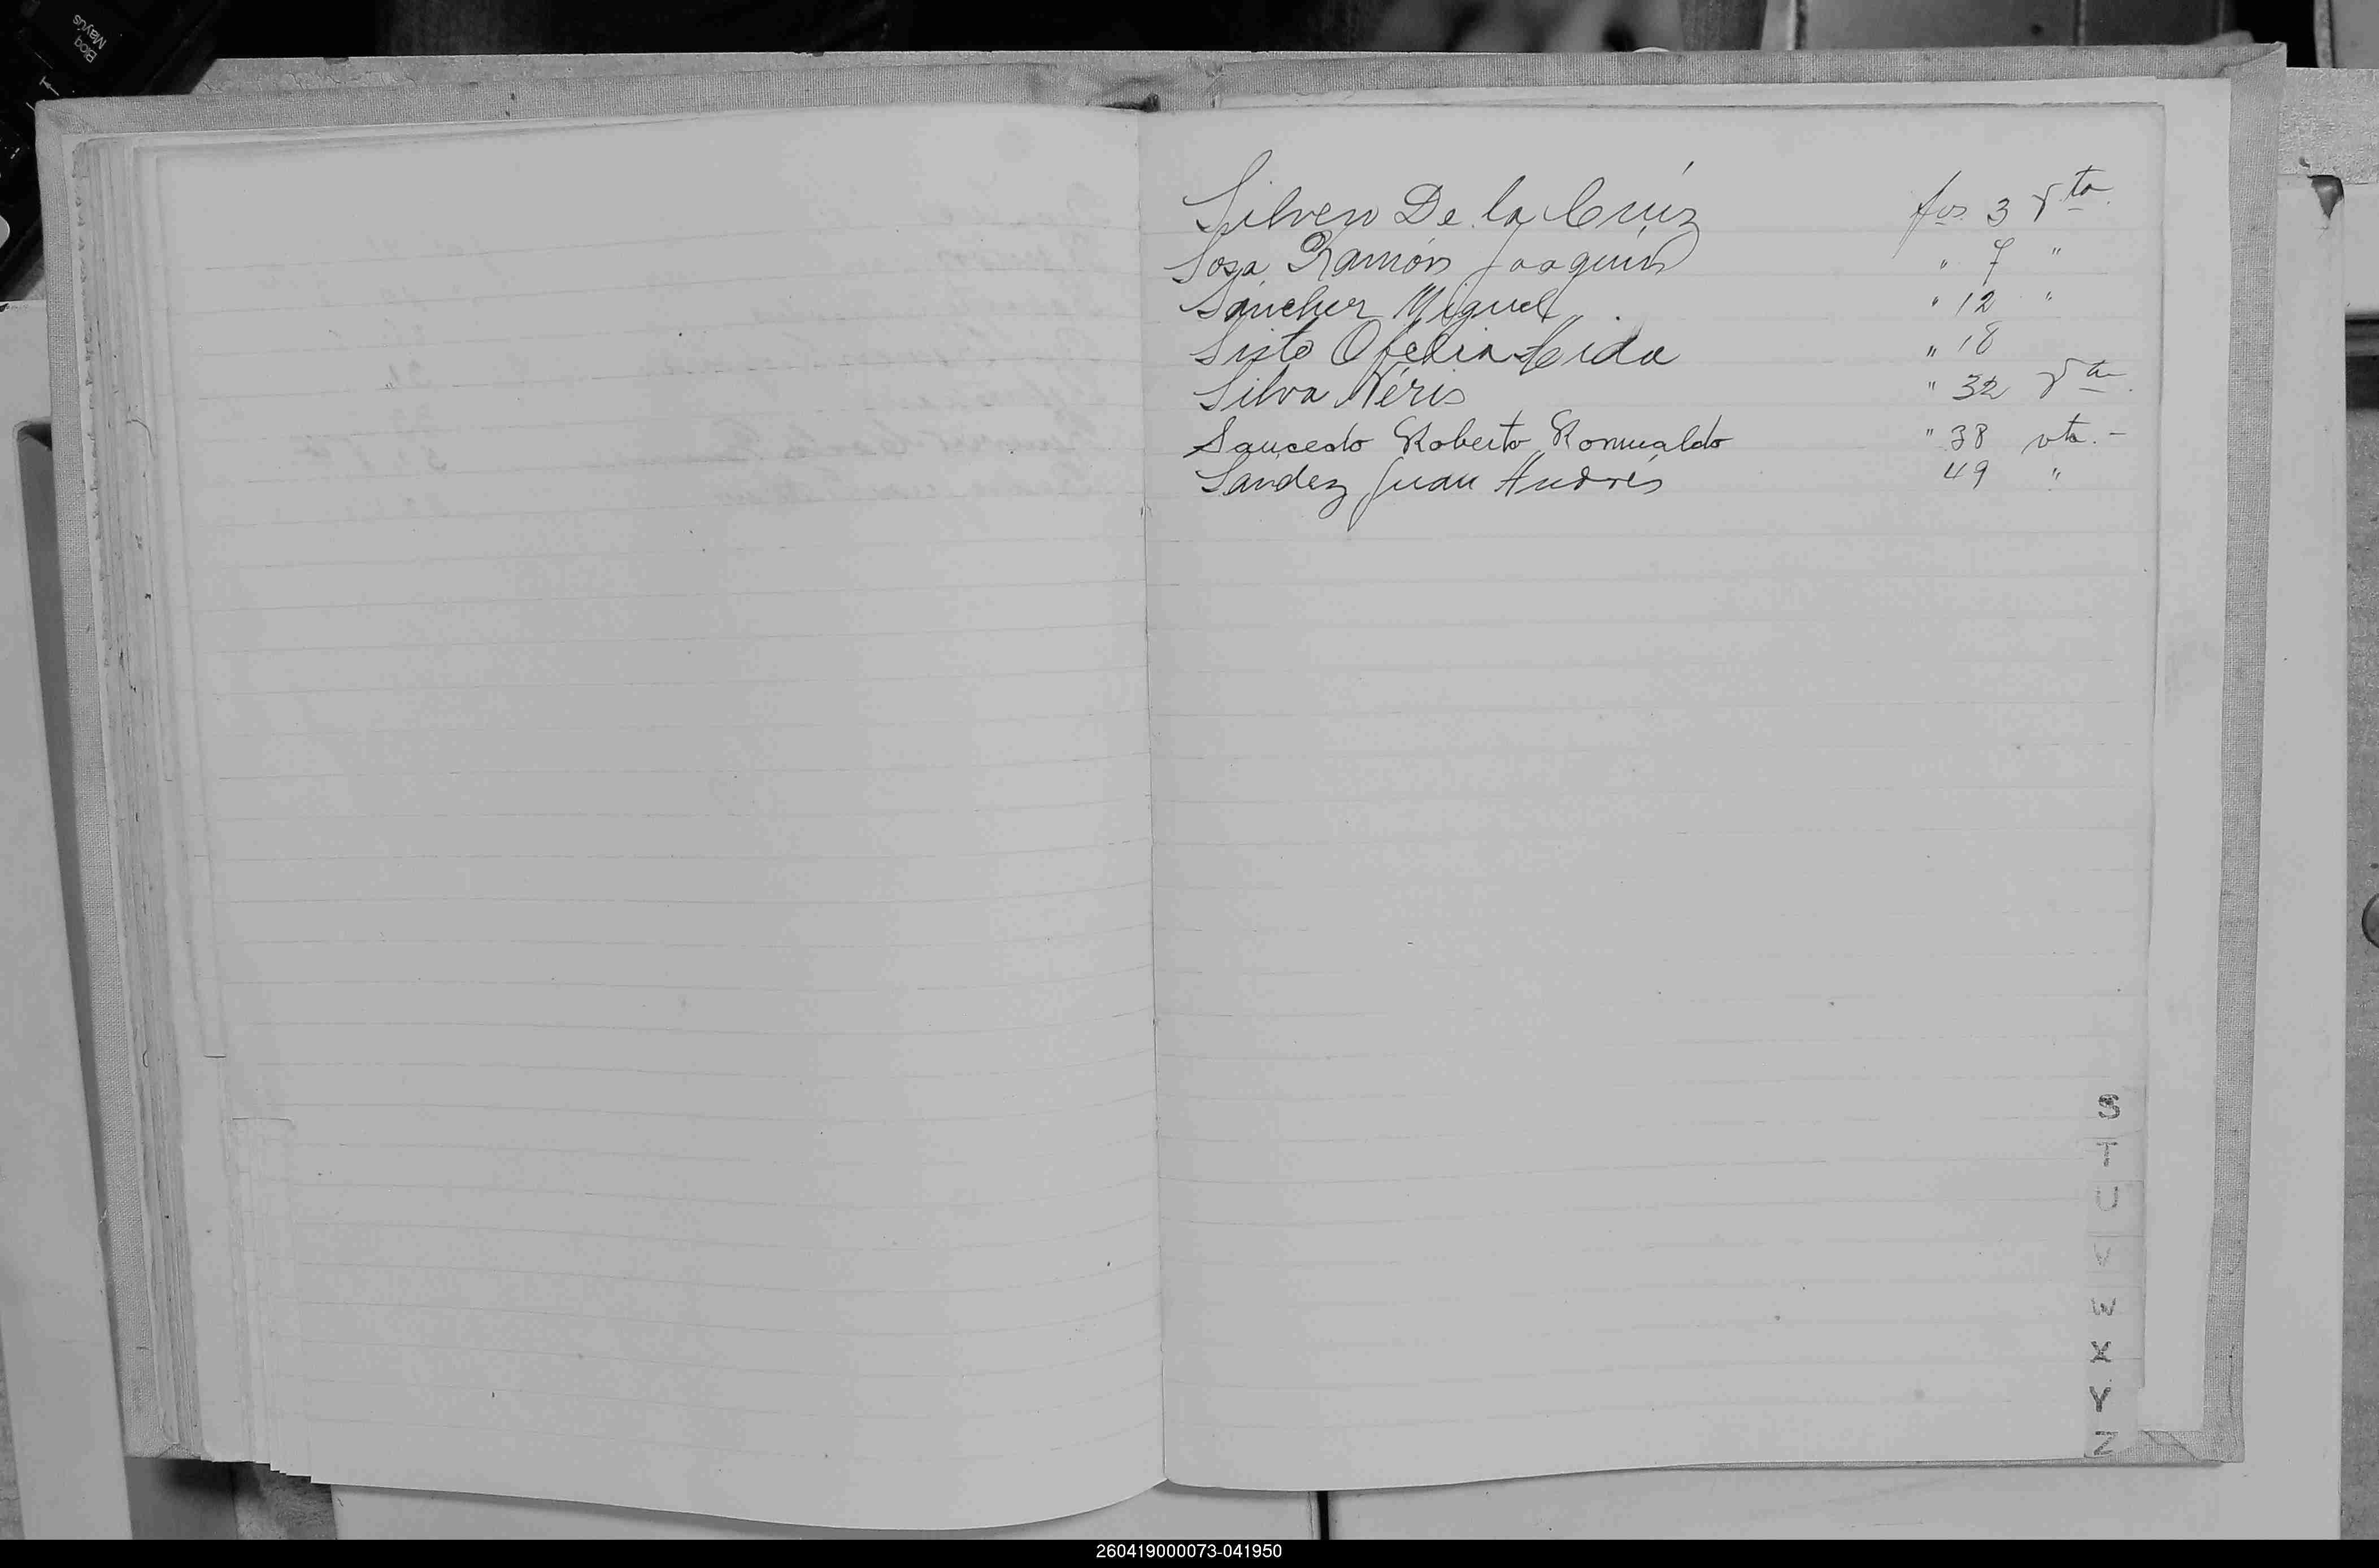 Silvero De la Crúz fos. 3 Vta.
Sosa Ramón Joaquín " 7 "
Sánchez Miguel " 12 "
Sixto Ofelia Leida " 18
Silva Néris " 32 Vta.
Saucedo Roberto Romualdo " 38 vta. -
Sández Juan Andrés 49 "
S
T
U
V
W
X
Y
Z
Bloq
Mayús
260419000073-041950